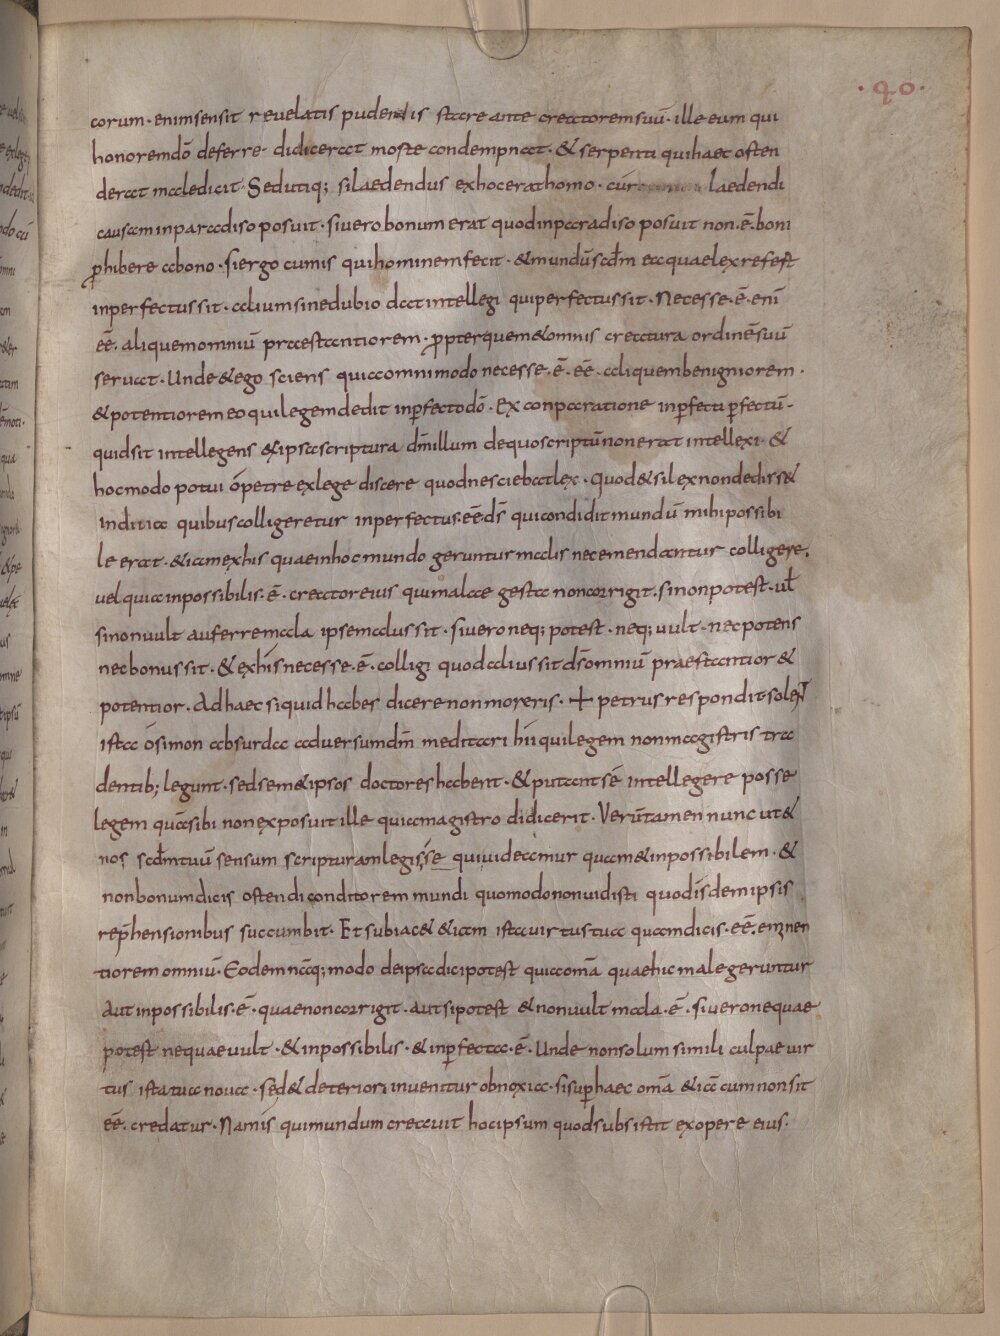 · 40 ·
corum · enim sensit revelatis pudendis stare ante creatorem suū · ille eum qui
honorem dō deferre · didicerat morte condempnat · & serpenti qui haec osten
derat maledicit · Sed utiq; si laedendus ex hoc erat homo · cur laedendi
causam in paradiso posuit · si vero bonum erat quod in paradiso posuit non · ē · boni
ꝓhibere a bono · si ergo cum is qui hominem fecit · & mundū scdm ea quae lex refert
inperfectus sit · alium sine dubio dat intellegi qui perfectus sit · Necesse · ē · enī
eē · aliquem omniū praestantiorem · ꝓpter quem & omnis creatura ordinē suū
servat · Unde & ego sciens quia omnimodo necesse · ē · eē · aliquem benigniorem ·
& potentiorem eo qui legem dedit inꝑfecto dō · Ex conparatione inꝑfecti ꝑfectū ·
quid sit intellegens & ipsa scriptura dm̄ illum de quo scriptū non erat intellexi · &
hoc modo potui ó petre ex lege discere quod nesciebat lex · Quod & si lex non dedisset
inditia quibus colligeretur inperfectus · eē · ds̄ qui condidit mundū mihi possibi
le erat · & iam ex his quae in hoc mundo geruntur malis nec emendantur colligere ·
vel quia inpossibilis · ē · creator eius qui male gesta non corrigit · si non potest · ul̄
si non vult auferre mala ipse malus sit · si vero neq; potest · neq; vult · nec potens
nec bonus sit · & ex his necesse · ē · colligi quod alius sit ds̄ omniū praestantior &
potentior · Ad haec si quid habes dicere non moreris · + petrus respondit solent
ista ó simon absurda adversum dm̄ meditari hii qui legem non magistris tra
dentib; legunt · sed sem&ipsos doctores habent · & putant sē intellegere posse
legem quā sibi non exposuit ille qui a magistro didicerit · Verūtamen nunc ut &
nos scdm tuū sensum scripturam legisse qui videamur quam & inpossibilem · &
non bonum dicis ostendi conditorem mundi quomodo non vidisti quod isdem ipsis
rep̄hensionibus succumbit · Et subiac& &iam ista virtus tua quam dicis · eē · eminen
tiorem omniū · Eodem nāq; modo de ipsa dici potest quia om̄a quae hic male geruntur
Aut inpossibilis · ē · quae non corrigit · aut si potest & non vult mala · ē · si vero nequae
potest nequae vult · & inpossibilis · & inꝑfecta · ē · Unde non solum simili culpae vir
tus ista tua nova · sed & deteriori invenitur obnoxia · si suꝑ haec om̄a &iā cum non sit
eē · credatur · Nam is qui mundum creavit hoc ipsum quod subsistit ex opere eius ·